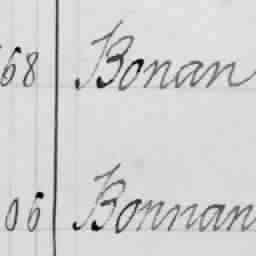 68 Bonan
06 Bonnan